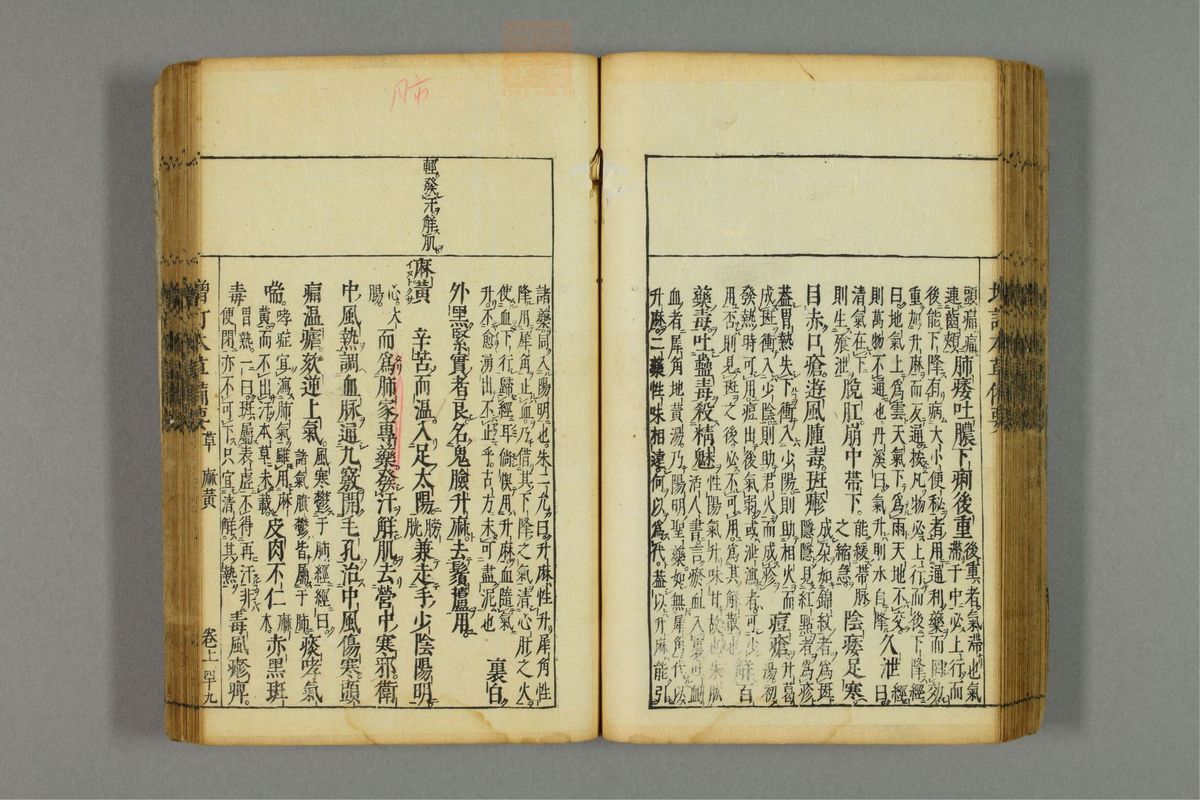 頭痛痛
連齒頰
肺痿吐膿下痢後重
後重者氣滯也氣
滯于中必上行而
後能下降有病大小便秘者用通利藥而罔效
重加升麻而反通
凡物必上行而後下降
曰地氣上爲雲天氣下爲雨天地不交
則萬物不通也丹溪曰氣升則水自降
久泄
清氣在下
則生飱泄
脫肛崩中帶下
能緩帶脉
之縮急
陰痿足寒
目赤口瘡遊風腫毒斑疹
成朶如錦紋者爲斑
隱隱見紅點者爲疹
蓋胃熱失下衝入少陽則助相火而
成斑衝入少陰則助君火而成疹
痘瘡
升葛湯初
發熱時可用痘出後氣弱或泄瀉者可少
用否則見斑之後必不可用爲其解散也
解百
藥毒吐蠱毒殺精魅
性陽氣升味甘
活人書言瘀血入裏吐血
血者犀角地黃湯乃陽明聖藥如無犀角代以
升麻二藥性味相遠何以爲代蓋以升麻能引
諸藥同入陽明也朱二允曰升麻性升犀角性
降用犀角止血乃借其下降之氣淸心肝之火
使血下行歸經耳倘悞用升麻血隨氣
升不愈涌出不止乎古方未可盡泥也
裏白
外黑緊實者良名鬼臉升麻去鬚蘆用
輕發汗解肌
麻黃
辛苦而溫入足太陽
膀胱
兼走手少陰陽明
心大
腸
而爲肺家專藥發汗解肌去營中寒邪衛
中風熱調血脉通九竅開毛孔治中風傷寒頭
痛溫瘧欬逆上氣
風寒鬱于肺經經曰
諸氣膹鬱皆屬于肺
痰哮氣
喘
哮症宜瀉肺氣雖用麻
黃而不出汗本草未載
皮肉不仁
麻木
赤黑斑
毒
胃熱一曰斑屬表虛不得再汗非
便閉亦不可下只宜清解其熱
毒風疹痺
增訂本草備要
草
麻黃
卷上
四十九
肺